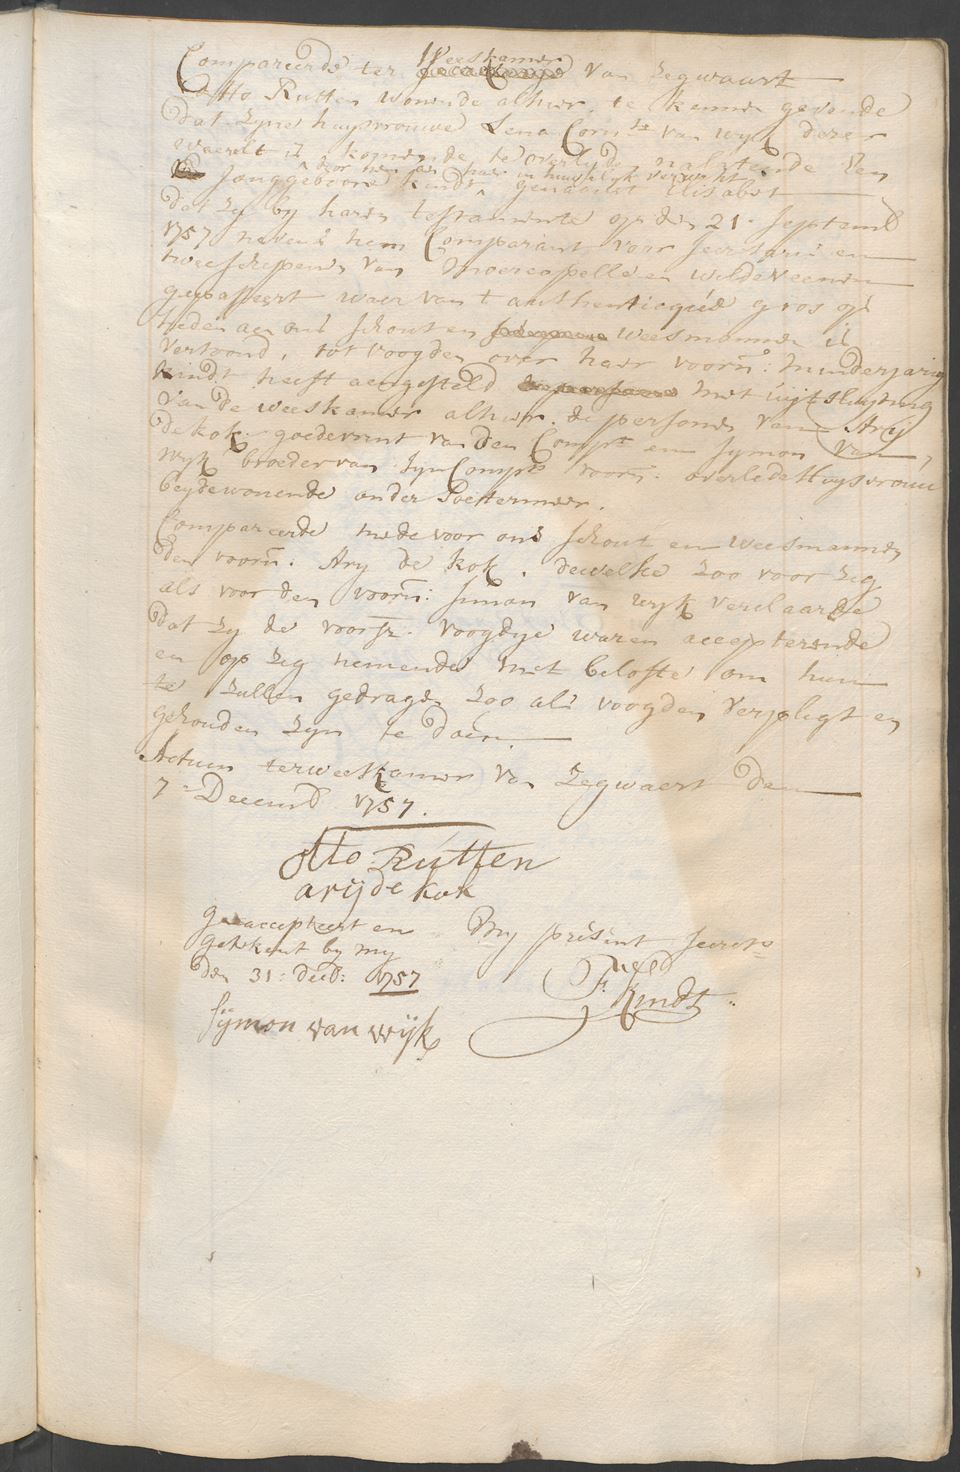 Weeskamer
Compareerde ter van Zegwaart
Otto Rutten wonende alhier, te kennen gevende
dat zyne huysvrouwe Lena Corn:de van Wyk deser
waerelt is komende te overlyden nalatende Een
door hem aen haer in huwelyk verwekt
Jonggeboore kindt genaamt Elisabet
dat zy by haren testamente op den 21: Septemb
1757 nevens hem Comparant voor Secretaris en
twee schepenen van Moercapelle en Wilde Veenen
gepasseert waer van t authenticque gros op
heden aen ons schout en weesmannen is
vertoond, tot voogden over haer voorn: minderjarig
kindt heeft aengesteld met uijtsluyting
van de weeskamer alhier, de persone van Arij
de Kok goede vrint van den Compt en Symon van
Wyk broeder van zyn Compts voorn: overlede Huysvrouw
beyde wonende onder Soetermeer.
Compareerde mede voor ons schout en weesmannen
den voorn. Ary de Kok, dewelke zoo voor zig
als voor den voorn: Simon van Wyk verclaarde
dat zy de voorsz. voogdye waren accepterende
en op zig nemende met belofte om hun
te zullen gedragen zoo als voogden verpligt en
gehouden zyn te doen.
Actum ter weeskamer van Zegwaert den
7: Decemb 1757.
Otto Rutten
arij de kok
geaccepteert en
getekent by my
den 31: decb: 1757
Sijmon van Wijk
My présent Secrets
F: Kindt